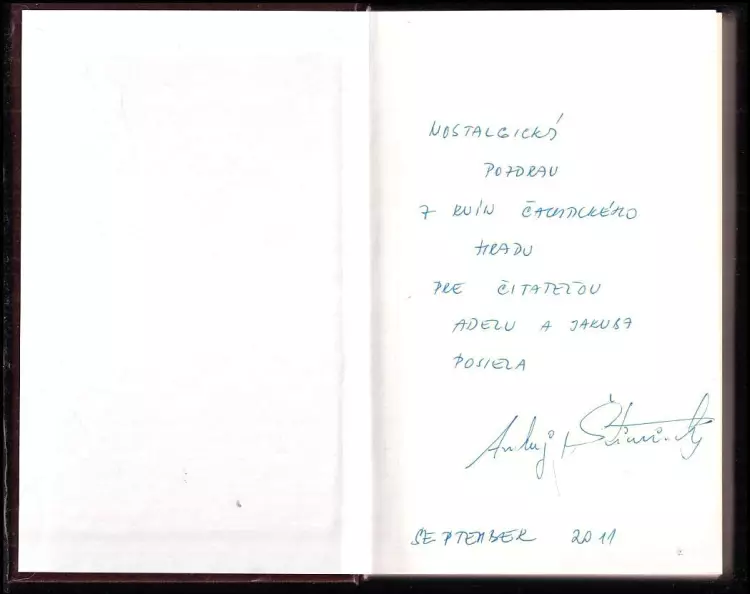 NOSTALGICKÝ
POZDRAV
Z RUÍN ČACHTICKÉHO
HRADU
PRE ČITATEĽOV
ADELU A JAKUBA
POSIELA
Andrej Štiavnický
SEPTEMBER 2011